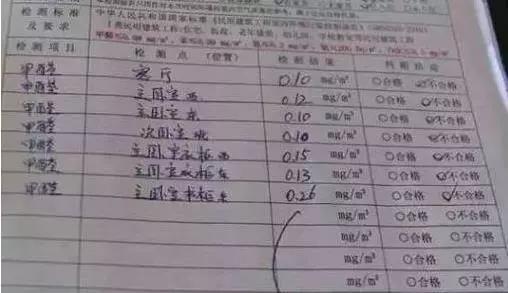 检测标准及要求
中华人民共和国国家标准《民用建筑工程室内环境
I类民用建筑工程:住宅、医院、老年建筑、幼儿园、学校教室等民用建筑工程
检测项目 检测点(位置) 检测结果 判断结果
甲醛 客厅 0.10 mg/m³ ○合格 ☑不合格
甲醛 主卧室西 0.12 mg/m³ ○合格 ☑不合格
甲醛 主卧室东 0.10 mg/m³ ○合格 ☑不合格
甲醛 次卧室 0.10 mg/m³ ○合格 ☑不合格
甲醛 主卧室衣柜西 0.15 mg/m³ ○合格 ☑不合格
甲醛 主卧室衣柜东 0.13 mg/m³ ○合格 ☑不合格
甲醛 主卧室书柜东 0.26 mg/m³ ○合格 ☑不合格
mg/m³ ○合格 ○不合格
mg/m³ ○合格 ○不合格
mg/m³ ○合格 ○不合格
mg/m³ ○合格 ○不合格